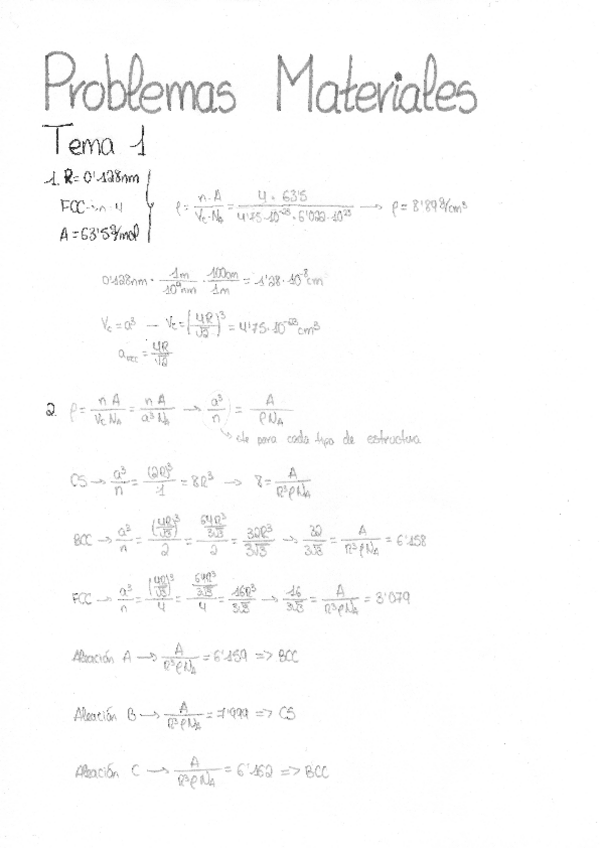 Problemas Materiales
Tema 1
1. R= 0'128nm
FCC → n=4
A = 63'5g/mol
ρ = n·A / Vc·NA = 4·63'5 / 4'75·10^-23·6'022·10^23 → ρ = 8'89g/cm³
0'128nm · 1m / 10^9nm · 100cm / 1m = 1'28·10^-8cm
Vc = a³ → Vc = (4R/√2)³ = 4'75·10^-23cm³
aFCC = 4R/√2
2. ρ = n A / Vc NA = n A / a³ NA → a³/n = A / ρNA
cte para cada tipo de estructura
CS → a³/n = (2R)³/1 = 8R³ → 8 = A / R³ρNA
BCC → a³/n = (4R/√3)³/2 = 64R³/3√3 / 2 = 32R³/3√3 → 32/3√3 = A / R³ρNA = 6'158
FCC → a³/n = (4R/√3)³/4 = 64R³/3√3 / 4 = 16R³/3√3 → 16/3√3 = A / R³ρNA = 3'079
Aleación A → A / R³ρNA = 6'159 => BCC
Aleación B → A / R³ρNA = 7'999 => CS
Aleación C → A / R³ρNA = 6'162 => BCC